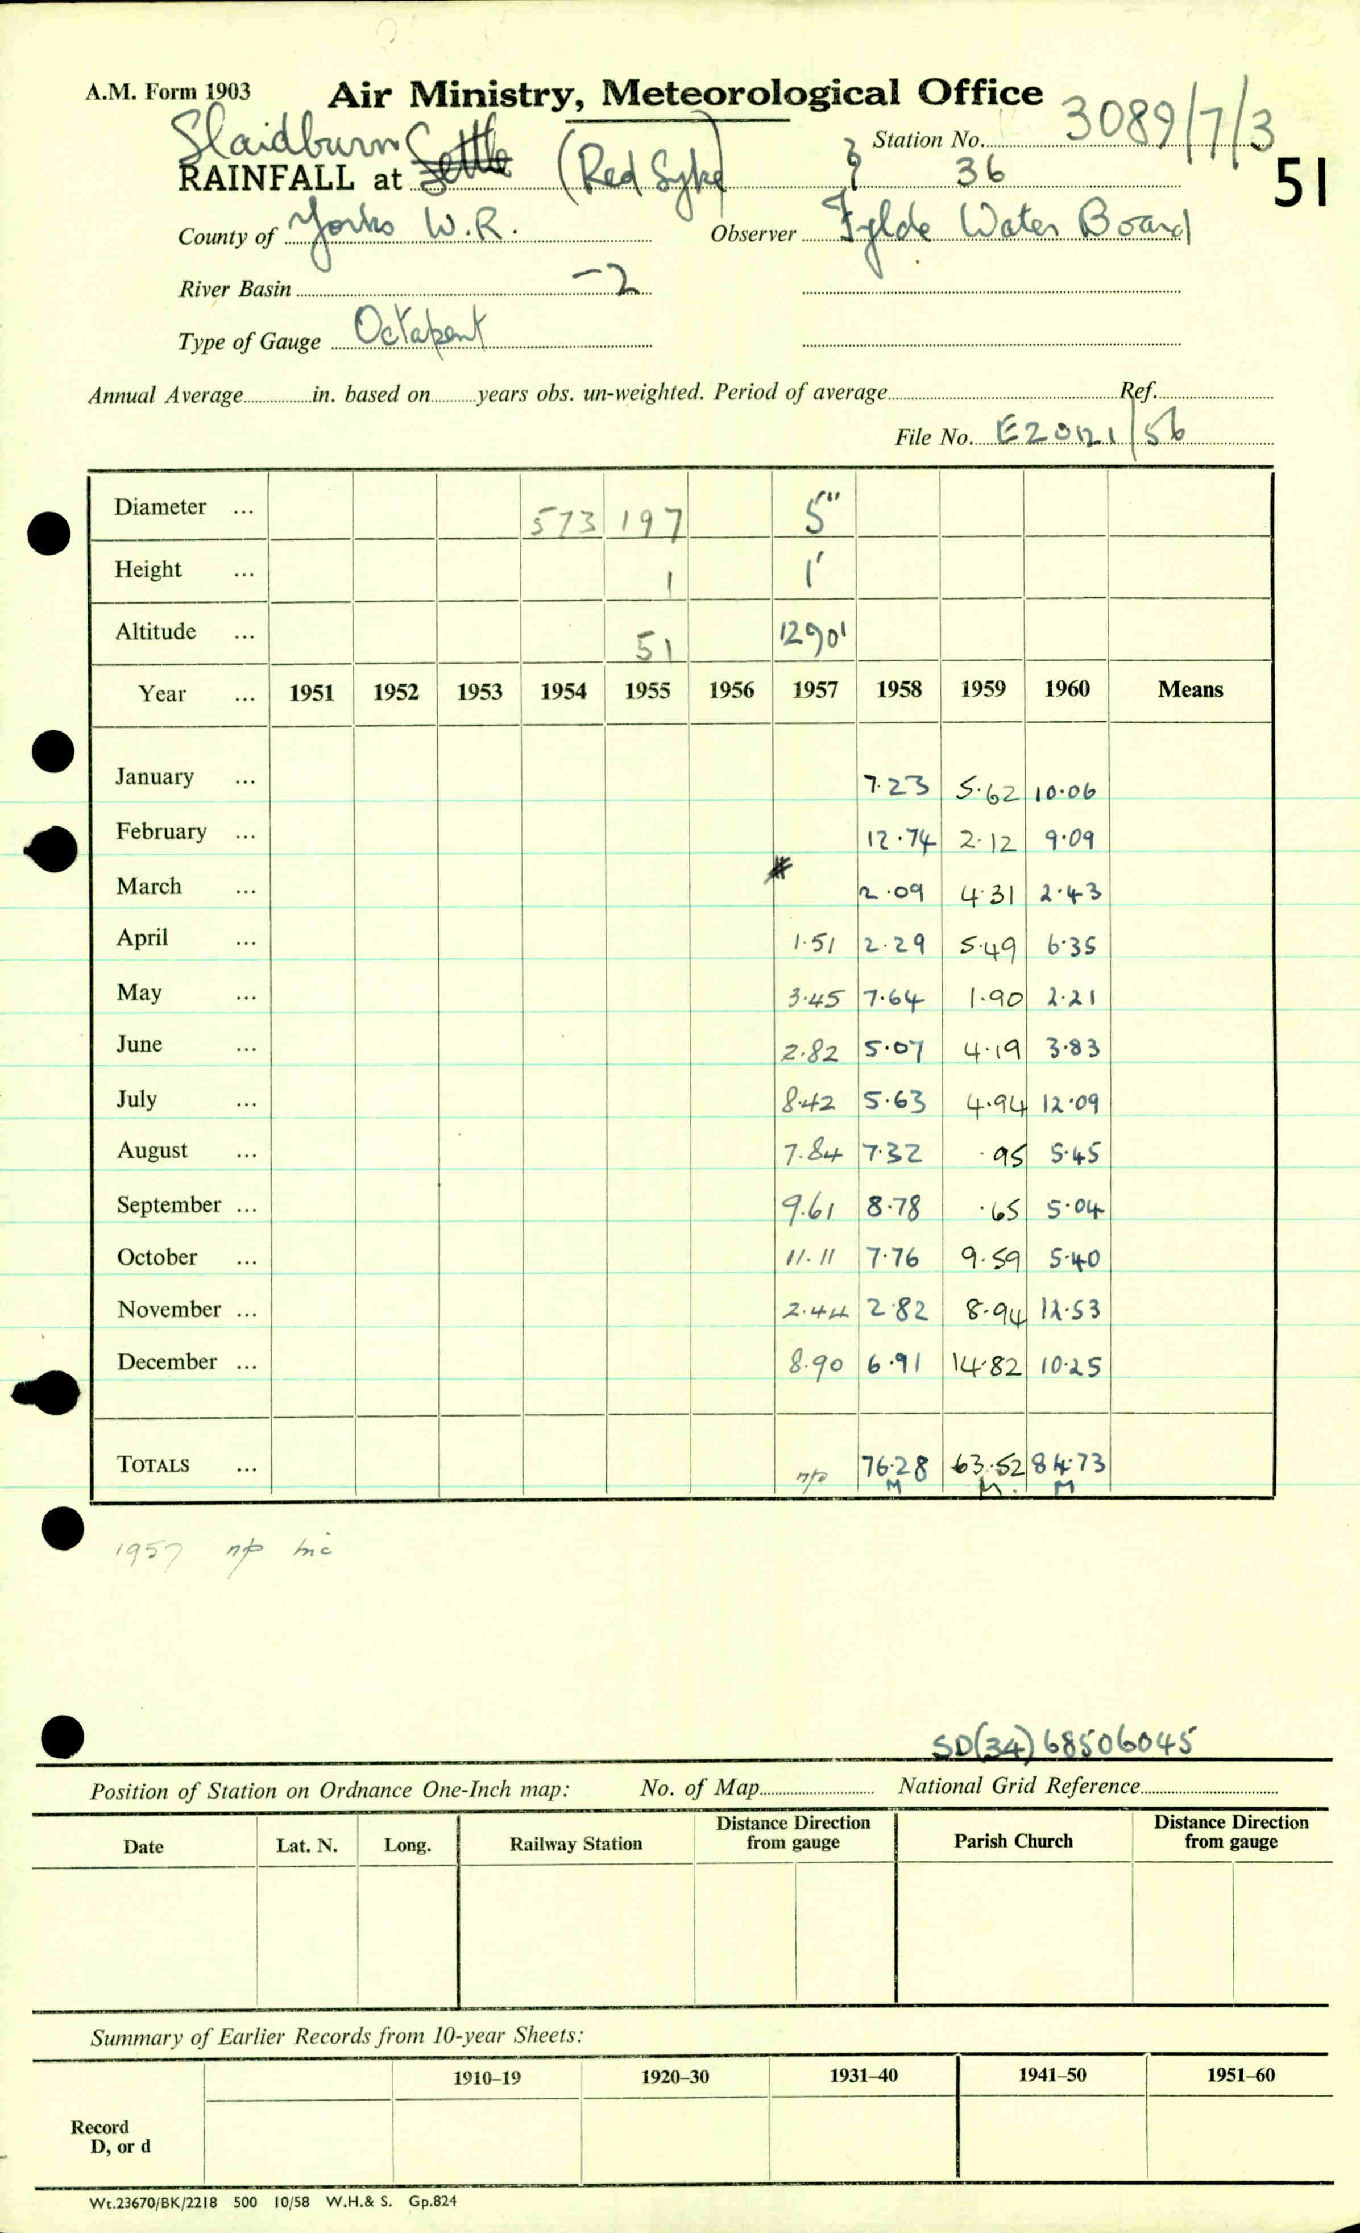 A.M. Form 1903 Air Ministry, Meteorological Office 3089/7/3
Station No.
Slaidburn
RAINFALL at Settle (Red Syke) 36 51
County of Yorks W.R. Observer Fylde Water Board
River Basin -2
Type of Gauge Octapent
Annual Average in. based on years obs. un-weighted. Period of average Ref.
File No. E20121/56
Diameter ... 573 197 5"
Height ... 1 1'
Altitude ... 51 1290'
Year ... 1951 1952 1953 1954 1955 1956 1957 1958 1959 1960 Means
January ... 7.23 5.62 10.06
February ... 12.74 2.12 9.09
March ... 2.09 4.31 2.43
April ... 1.51 2.29 5.49 6.35
May ... 3.45 7.64 1.90 2.21
June ... 2.82 5.07 4.19 3.83
July ... 8.42 5.63 4.94 12.09
August ... 7.84 7.32 .95 5.45
September ... 9.61 8.78 .65 5.04
October ... 11.11 7.76 9.59 5.40
November ... 2.44 2.82 8.94 12.53
December ... 8.90 6.91 14.82 10.25
TOTALS ... np 76.28 63.52 84.73
M M. M
1957 np inc
SD(34)68506045
Position of Station on Ordnance One-Inch map: No. of Map National Grid Reference
Date Lat. N. Long. Railway Station Distance Direction from gauge Parish Church Distance Direction from gauge
Summary of Earlier Records from 10-year Sheets:
1910–19 1920–30 1931–40 1941–50 1951–60
Record
D, or d
Wt.23670/BK/2218 500 10/58 W.H.& S. Gp.824